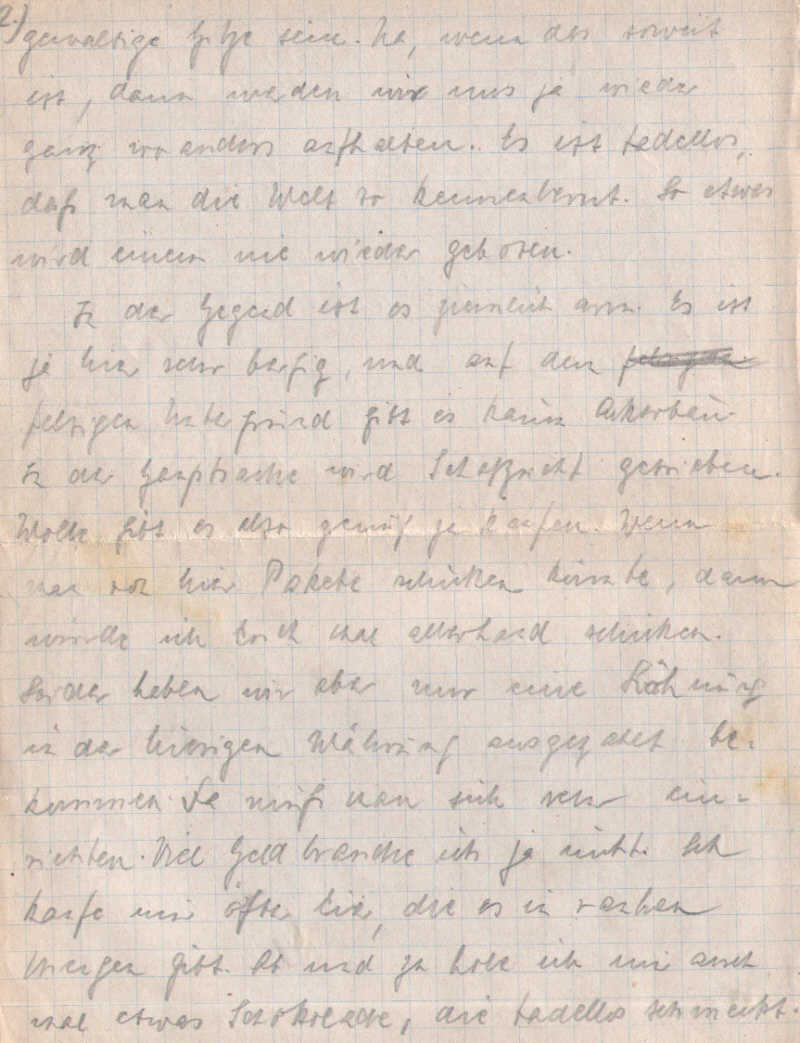 2.)
gewaltige Hitze sein. Na, wenn das soweit
ist, dann werden wir uns ja wieder
ganz wo anders aufhalten. Es ist tadellos,
daß man die Welt so kennenlernt. So etwas
wird einem nie wieder geboten.
In der Gegend ist es ziemlich arm. Es ist
ja hier sehr bergig, und auf dem felsigen
felsigen Untergrund gibt es kaum Ackerbau.
In der Hauptsache wird Schafzucht getrieben.
Wolle gibt es also genug zu kaufen. Wenn
man von hier Pakete schicken könnte, dann
würde ich Euch mal allerhand schicken.
Leider haben wir aber nur eine Löhnung
in der hiesigen Währung ausgezahlt be-
kommen. Da muß man sich sehr ein-
richten. Viel Geld brauche ich ja nicht. Ich
kaufe mir öfter Eier, die es in rauhen
Mengen gibt. Ab und zu hole ich mir auch
mal etwas Schokolade, die tadellos schmeckt.